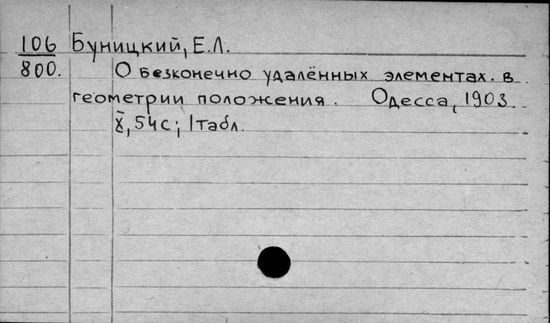 106 Буницкий, Е.Л.
800. О безконечно удалённых элементах. в
геометрии положения. Одесса, 1903.
X, 54с; 1 табл.